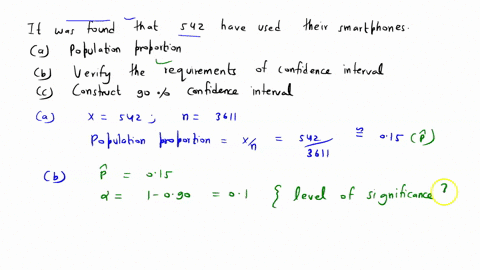 It was found that 542 have used their smartphones.
(a) Population proportion
(b) Verify the requirements of confidence interval
(c) Construct 90 % confidence interval
(a) x = 542 ; n = 3611
Population proportion = x/n = 542/3611 ≅ 0.15 (p̂)
(b) p̂ = 0.15
α = 1 - 0.90 = 0.1 { level of significance }